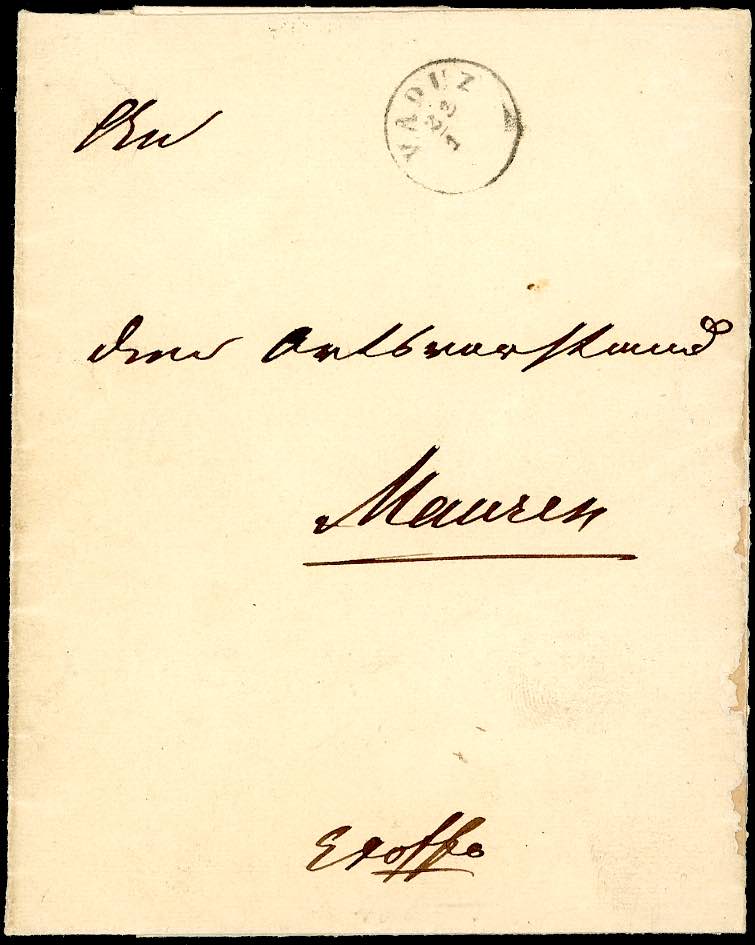 An
VADUZ
23/7
den Ortsvorstand
Mauren
Exoffo